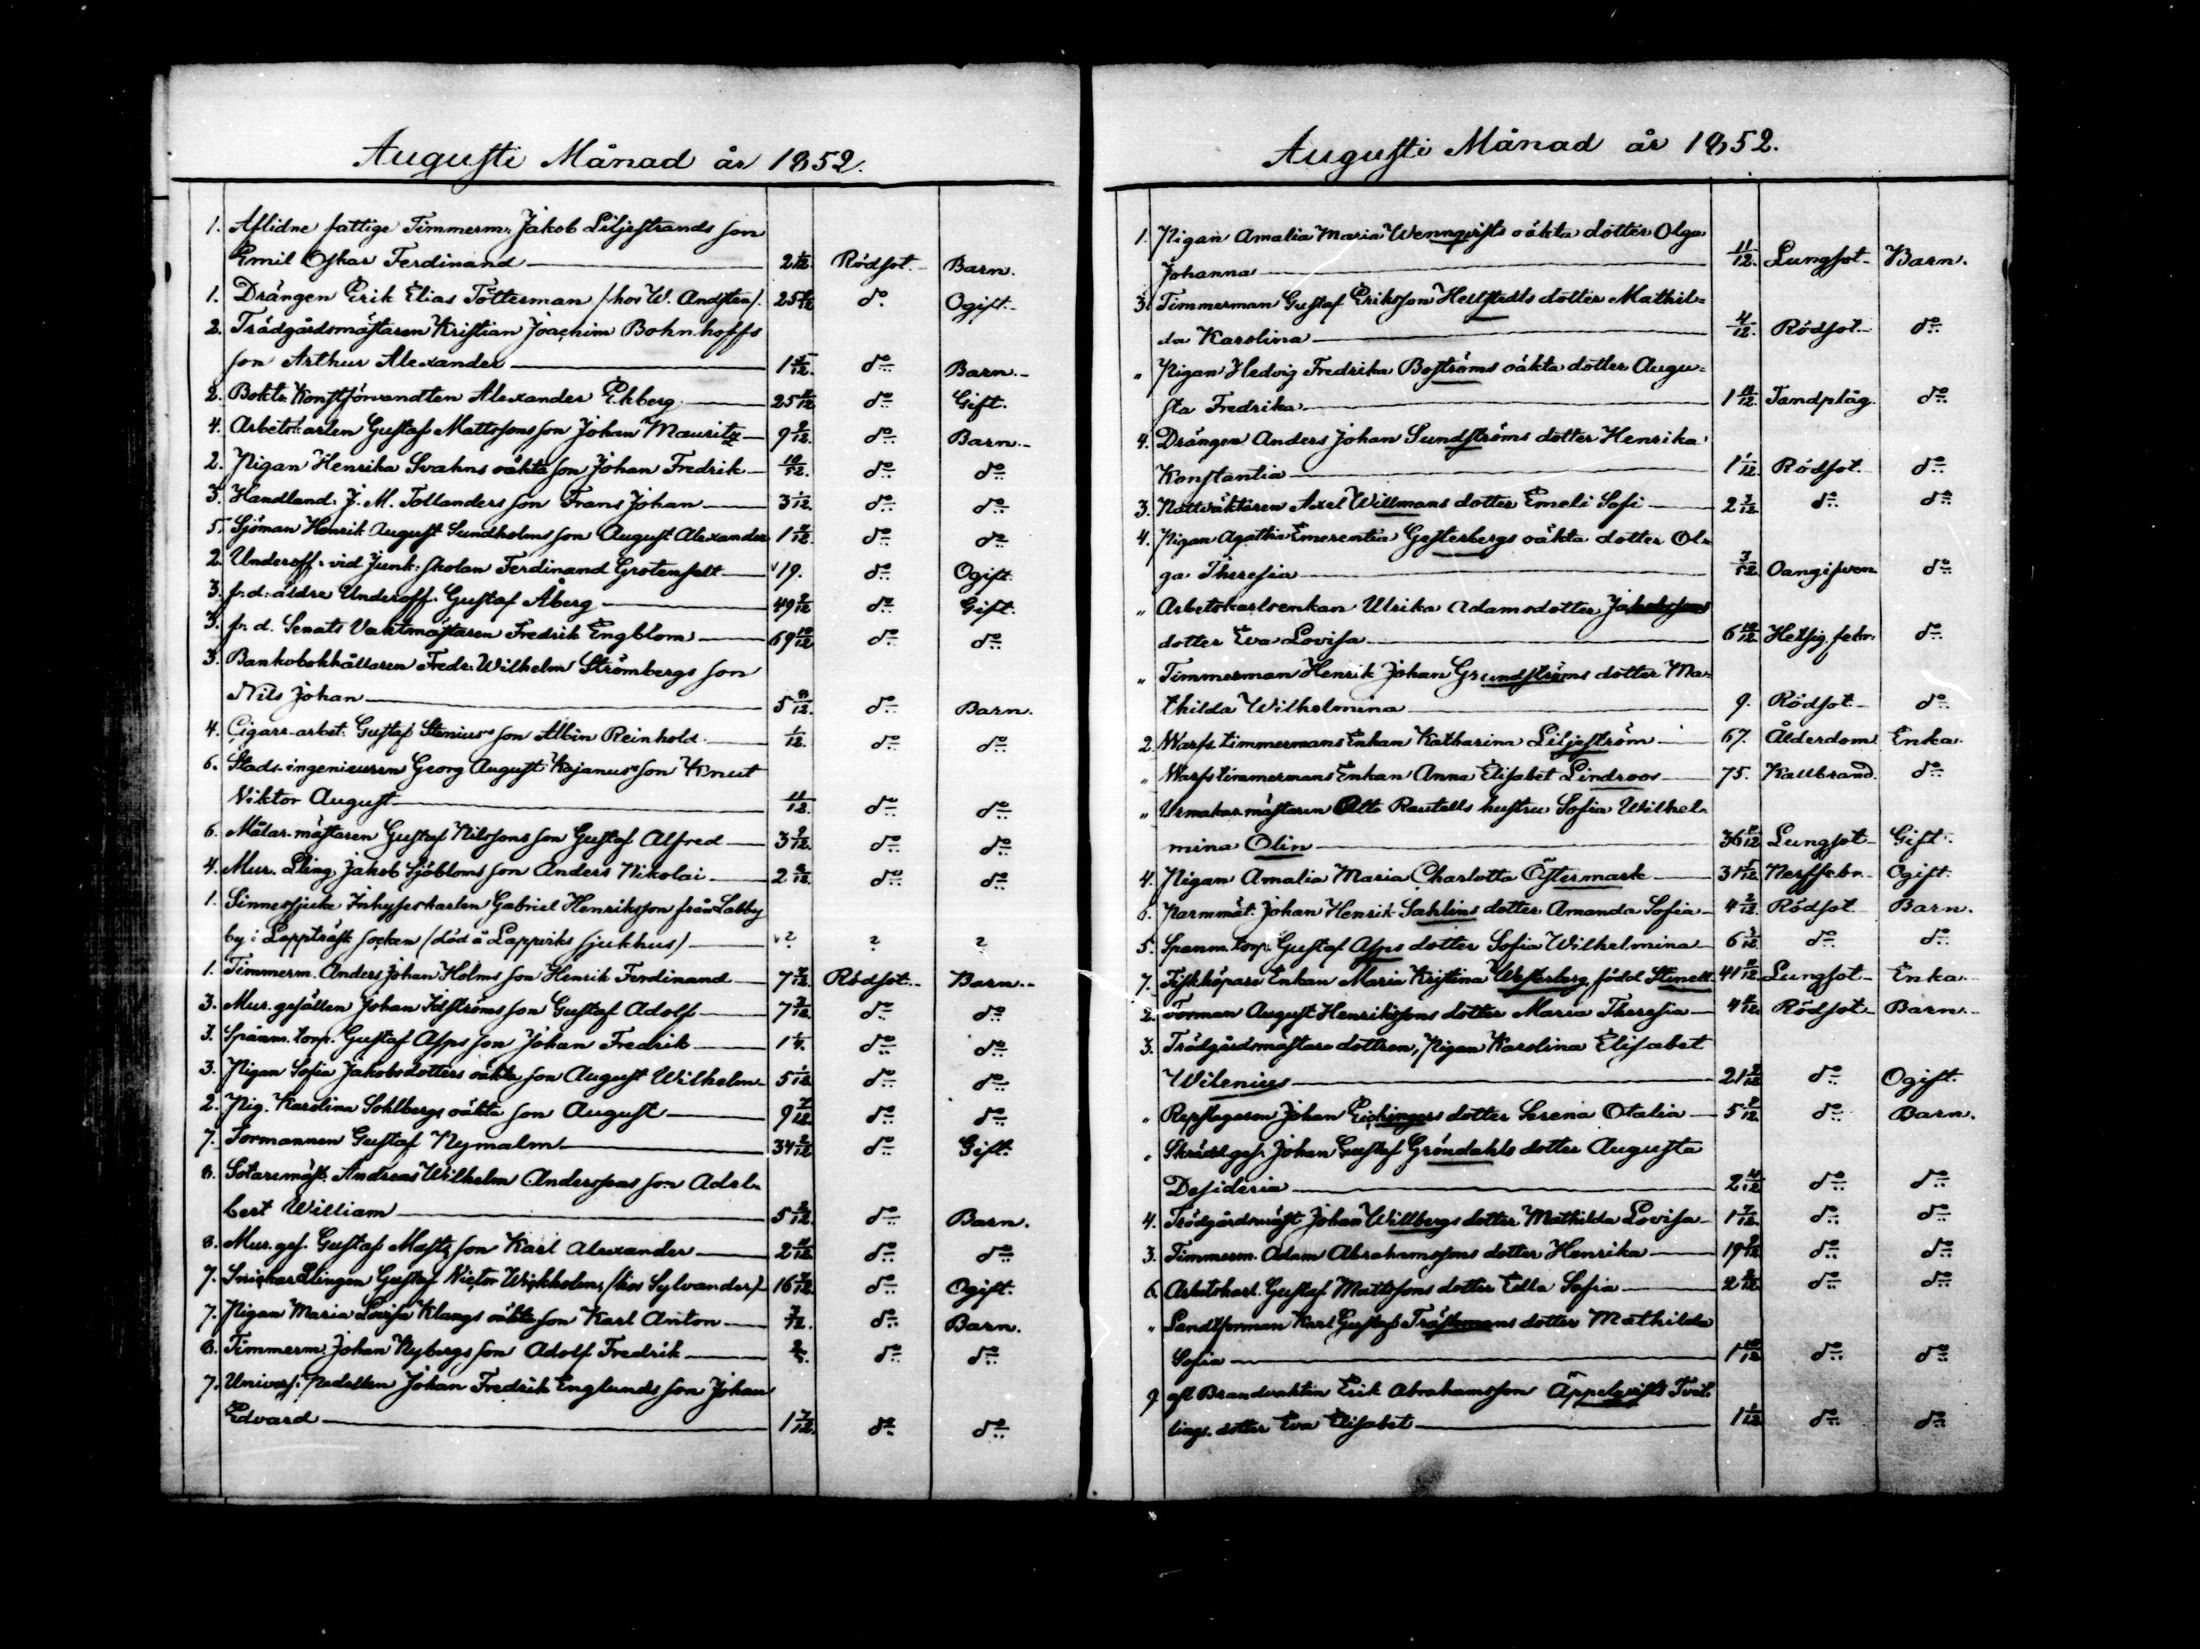 Augusti Månad år 1852.
1. Aflidne fattige Timmerm. Jakob Liljestrands son
Emil Oskar Ferdinand 2 Rödsot. Barn.
1. Drängen Erik Elias Tötterman /: hos W. Andsten /. 25 do. Ogift.
2. Trädgårdsmästaren Kristian Joachim Bohnhoffs
son Arthur Alexander 1 do Barn.
2. Boktr. Konstförvandten Alexander Ekberg 25 do Gift.
4. Arbetskarlen Gustaf Mattssons son Johan Mauritz 9 9/12. do Barn.
2. Pigan Henrika Svahns oäkta son Johan Fredrik 10/52. do do
3. Handland. J. M. Tollanders son Frans Johan 3 do do
5. Sjöman Henrik August Sundholms son August Alexander 1 do do
2. Underoff. vid Junk. skolan Ferdinand Grotenfelt 19. do Ogift.
3. f. d. äldre Underoff. Gustaf Åberg 49 do Gift.
3. f. d. Senats Vaktmästaren Fredrik Engblom 69 10/12 do do
3. Bankobokhållaren Fredr. Wilhelm Strömbergs son
Nils Johan 5 do Barn.
4. Cigarr-arbet. Gustaf Stenius' son Albin Reinhold 1/12. do do
6. Stads-ingenieuren Georg August Kajanus' son Knut
Viktor August 11/12. do do
6. Målar-mästaren Gustaf Nilssons son Gustaf Alfred 3 9/12. do do
4. Mur. Lling Jakob Sjöbloms son Anders Nikolai 2 do do
1. Sinnessjuke Inhyseskarlen Gabriel Henriksson från Labby
by i Lappträsk socken (död å Lappviks sjukhus) ? ? ?
1. Timmerm. Anders Johan Holms son Henrik Ferdinand 7 Rödsot. Barn.
3. Mur. gesällen Johan Idströms son Gustaf Adolf 7 do do
3. Spanm. torp. Gustaf Asps son Johan Fredrik 1 do do
3. Pigan Sofia Jakobsdotters oäkta son August Wilhelm 5 1/12 do do
2. Pig. Karolina Sohlbergs oäkta son August 9 7/12. do do
7. Formannen Gustaf Nymalm 34 do Gift.
8. Sotaremäst. Andreas Wilhelm Anderssons son Adel-
bert William 5 do Barn.
8. Mur. ges. Gustaf Masts son Karl Alexander 2 do do
7. Snickar Llingen Gustaf Victor Wickholm, (hos Sylvander) 16 do Ogift.
7. Pigan Maria Lovisa Klangs oäkta son Karl Anton do Barn.
6. Timmerm. Johan Nybergs son Adolf Fredrik do do
7. Univers. Pedellen Johan Fredrik Englunds son Johan
Edvard 1 7/12. do do
Augusti Månad år 1852.
1. Pigan Amalia Maria Wennqvists oäkta dotter Olga
Johanna 11/12. Lungsot. Barn.
3. Timmerman Gustaf Eriksson Hellstedts dotter Mathil-
da Karolina 4/12. Rödsot. do
" Pigan Hedvig Fredrika Boströms oäkta dotter Augu-
sta Fredrika 1 Tandplåg. do
4. Drängen Anders Johan Sundströms dotter Henrika
Konstantia 1 1/12 Rödsot. do
3. Nattväktaren Axel Willmans dotter Emeli Sofi 2 do do
4. Pigan Agatha Emerentia Gesterbergs oäkta dotter Ol-
ga Theresia 3/52. Oangifven do
" Arbetskarlsenkan Ulrika Adamsdotter Jakobssons
dotter Eva Lovisa 6 10/12 Hetsig feb. do
" Timmerman Henrik Johan Grundströms dotter Ma-
thilda Wilhelmina 9. Rödsot. do
2. Warfs. timmermans Enkan Katharina Liljeström 67. Ålderdom Enka.
" Warfs timmermans Enkan Anna Elisabet Lindroos 75. Kallbrand. do
" Urmakar. mästaren Otto Rautells hustru Sofia Wilhel-
mina Olin 36 Lungsot Gift.
4. Pigan Amalia Maria Charlotta Östermark 31 Nerffebr. Ogift
6. Parmmät. Johan Henrik Sahlins dotter Amanda Sofia 4 Rödsot Barn.
5. Spanm. torp. Gustaf Asps dotter Sofia Wilhelmina 6 do do
7. Fiskköpare Enkan Maria Kristina Westerberg, född Stenell 41 Lungsot Enka.
2. Forman August Henrikssons dotter Maria Theresia 4 Rödsot Barn.
3. Trädgårdsmästare dottren, Pigan Karolina Elisabet
Wilenius 21 do Ogift.
" Repslagaren Johan Eichingers dotter Serena Otalia 5 do Barn.
" Skrädd. ges. Johan Gustaf Gröndahls dotter Augusta
Desideria 2 do do
4. Trädgårdsmäst Johan Willbergs dotter Mathilda Lovisa 1 7/12. do do
3. Timmerm. Adam Abrahamssons dotter Henrika 19 do do
6. Arbetskarl. Gustaf Mattssons dotter Edla Sofia 2 do do
" Landtforman Karl Gustaf Träskmans dotter Mathilda
Sofia 1 10/12 do do
9 afl Brandvakten Erik Abrahamsson Äppelqvists Tvil-
lings. dotter Eva Elisabet 1 1/12 do do